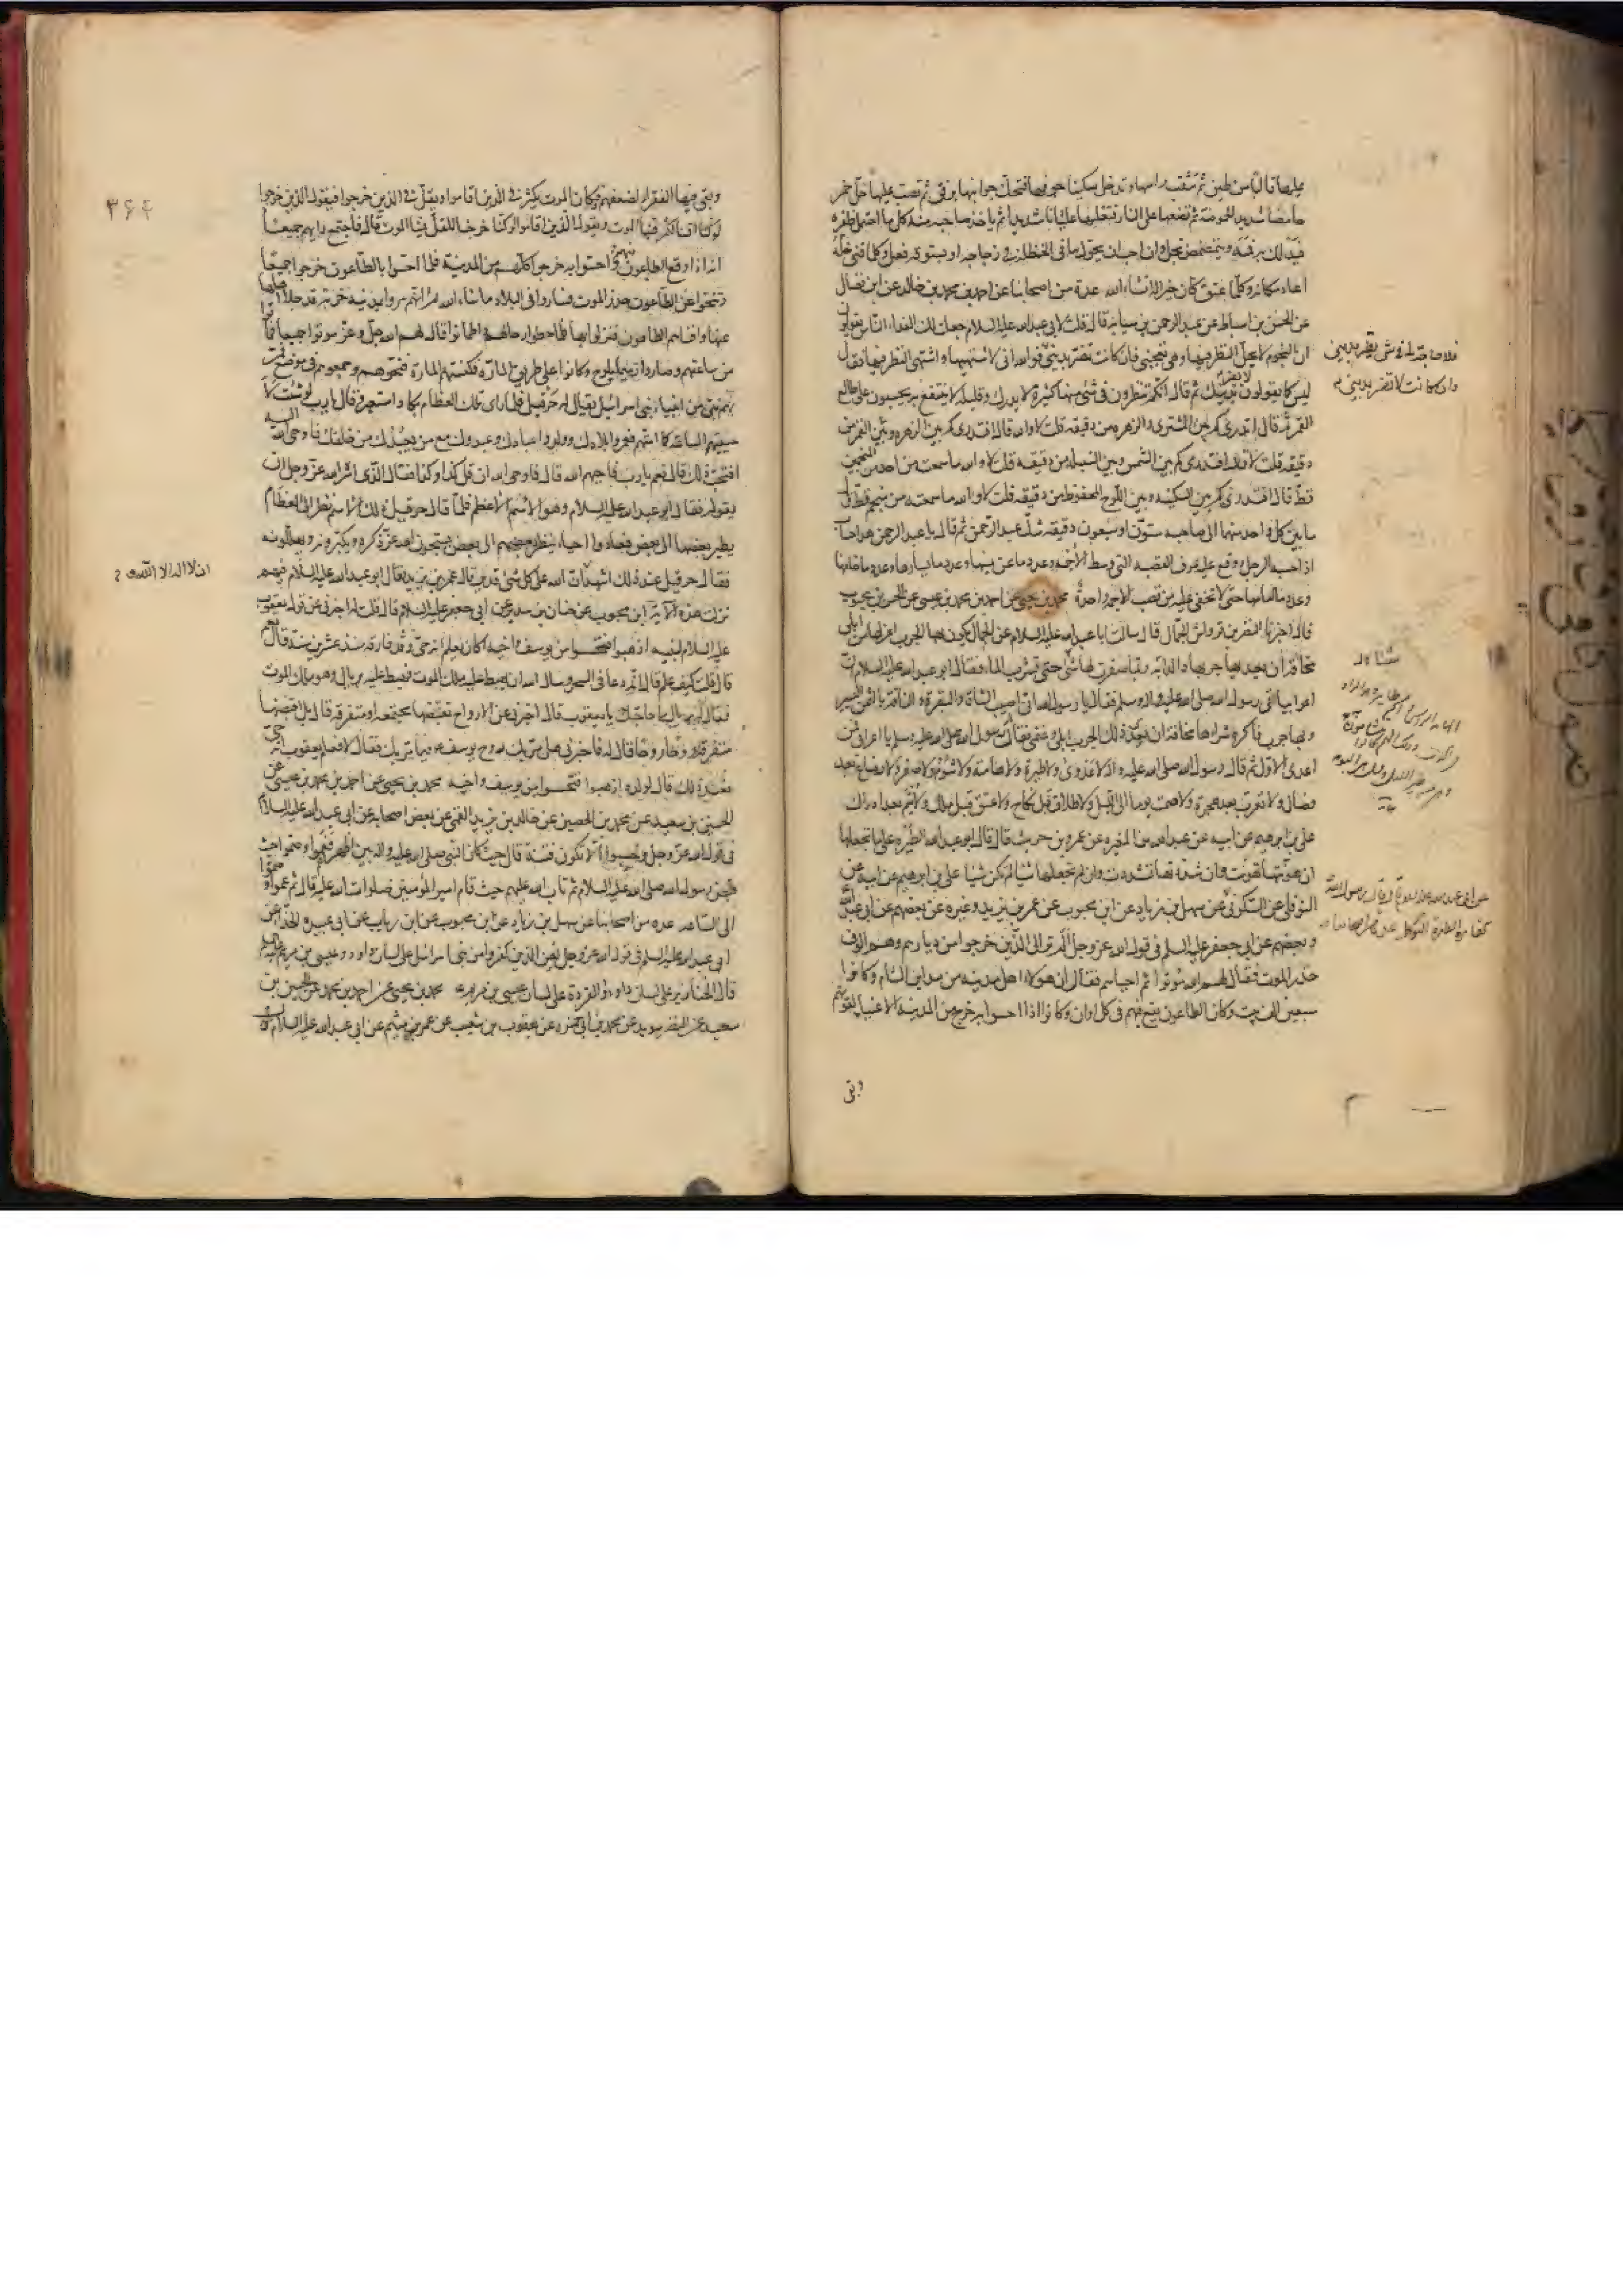 عليها قالبا من طين ثم تثقب راسها وتدخل سكينا جوفها فتحك جوانبها برفق ثم تصب عليها خل خمر
حامضا شديد الحموضة ثم تضعها على النار تغليها غليانا شديدا ثم ياخذ صاحبه منه كل ما احتمل ظفره
فيدلك به فيه ويتمضمض بخل وان احب ان يحول ما في الحنظلة في زجاجة او بستوقة فعل وكلما فنى خله
اعاد مكانه وكلما عتق كان خيرا له ان شاء الله عدة من اصحابنا عن احمد بن محمد بن خالد عن ابن فضال
عن الحسن بن اسباط عن عبد الرحمن بن سيابة قال قلت لابي عبد الله عليه السلام جعلت لك الفداء ان الناس يقولون
ان النجوم لا يحل النظر فيها وهي تعجبني فان كانت تضر بديني فوالله اني لاشتهيها واشتهي النظر فيها فقال
ليس كما يقولون لا تضر بدينك ثم قال انكم تنظرون في شيء منها كثيره لا يدرك وقليله لا ينتفع به تحسبون على طالع
القمر ثم قال اتدري كم بين المشتري والزهرة من دقيقة قلت لا والله قال افتدري كم بين الزهرة وبين القمر من
دقيقة قلت لا قال افتدري كم بين الشمس وبين السنبلة من دقيقة قلت لا والله ما سمعت من احد من المنجمين
قط قال افتدري كم بين السكينة وبين اللوح المحفوظ من دقيقة قلت لا والله ما سمعته من منجم قط قال
ما بين كل واحد منهما الى صاحبه ستون او سبعون دقيقة شك عبد الرحمن ثم قال يا عبد الرحمن هذا حساب
اذا حسبه الرجل ووقع عليه عرف القصبة التي وسط الاجمة وعدد ما عن يمينها وعدد ما عن يسارها وعدد ما خلفها
وعدد ما امامها حتى لا يخفى عليه من قصب الاجمة واحدة محمد بن يحيى عن احمد بن محمد بن عيسى عن الحسن بن محبوب
قال اخبرنا النضر بن قرواش الجمال قال سالت ابا عبد الله عليه السلام عن الجمال يكون بها الجرب اعزلها من ابلي
مخافة ان يعديها جربها والدابة ربما صفرت لها حتى تشرب الماء فقال ابو عبد الله عليه السلام ان
اعرابيا اتى رسول الله صلى الله عليه واله وسلم فقال يا رسول الله اني اصيب الشاة والبقرة والناقة بالثمن اليسير
وبها جرب فاكره شراها مخافة ان يعدي ذلك الجرب ابلي وغنمي فقال له رسول الله صلى الله عليه وسلم يا اعرابي فمن
اعدى الاول ثم قال رسول الله صلى الله عليه واله لا عدوى ولا طيرة ولا هامة ولا شوم ولا صفر ولا رضاع بعد
فصال ولا تعرب بعد هجرة ولا صمت يوما الى الليل ولا طلاق قبل نكاح ولا عتق قبل ملك ولا يتم بعد ادراك
علي بن ابرهيم عن ابيه عن عبد الله بن المغيرة عن عمرو بن حريث قال قال ابو عبد الله الطيرة على ما تجعلها
ان هونتها تهونت وان شددتها تشددت وان لم تجعلها شيئا لم تكن شيئا علي بن ابرهيم عن ابيه عن
النوفلي عن السكوني عن سهل بن زياد عن ابن محبوب عن عمر بن يزيد وغيره عن بعضهم عن ابي عبد الله
وبعضهم عن ابي جعفر عليه السلم في قول الله عز وجل الم تر الى الذين خرجوا من ديارهم وهم الوف
حذر الموت فقال لهم الله موتوا ثم احياهم فقال ان هولاء اهل مدينة من مداين الشام وكانوا
سبعين الف بيت وكان الطاعون يقع فيهم في كل اوان وكانوا اذا احسوا به خرج من المدينة الاغنياء لقوتهم
وبقى
فلا حاجة لي في شيء يضر بديني
وان كانت لا تضر بديني
عن ابي عبد الله عليه السلام قال قال رسول الله
كفارة الطيرة التوكل عدة من اصحابنا
٣۶۴
وبقي فيها الفقراء لضعفهم فكان الموت يكثر في الذين اقاموا ويقل في الذين خرجوا فيقول الذين خرجوا
لو كنا اقمنا لكثر فينا الموت ويقول الذين اقاموا لو كنا خرجنا لقل فينا الموت قال فاجتمع رايهم جميعا
انه اذا وقع الطاعون فيهم واحسوا به خرجوا كلهم من المدينة فلما احسوا بالطاعون خرجوا جميعا
وتنحوا عن الطاعون حذر الموت فساروا في البلاد ما شاء الله ثم انهم مروا بمدينة خربة قد جلا اهلها
عنها وافناهم الطاعون فنزلوا بها فلما حطوا رحالهم واطمانوا قال لهم الله جل وعز موتوا جميعا فماتوا
من ساعتهم وصاروا رميما يلوح وكانوا على طريق المارة فكنستهم المارة فنحوهم وجمعوهم في موضع فمر
بهم نبي من انبياء بني اسرائيل يقال له حزقيل فلما راى تلك العظام بكا واستعبر وقال يا رب لو شئت لا
حييتهم الساعة كما امتهم فعمروا بلادك وولدوا عبادك وعبدوك مع من يعبدك من خلقك فاوحى الله اليه
افتحب ذلك قال نعم يا رب فاحيهم الله قال فاوحى الله ان قل كذا وكذا فقال الذي امره الله عز وجل ان
يقوله فقال ابو عبد الله عليه السلام وهو الاسم الاعظم فلما قال حزقيل ذلك الاسم نظر الى العظام
يطير بعضها الى بعض فعادوا احياء ينظر بعضهم الى بعض يسبحون الله عز ذكره ويكبرونه ويهللونه
فقال حزقيل عند ذلك اشهد ان الله على كل شيء قدير قال عمر بن يزيد فقال ابو عبد الله عليه السلام فيهم
نزلت هذه الاية ابن محبوب عن حنان بن سدير عن ابي جعفر عليه السلام قال قلت له اخبرني عن قول يعقوب
عليه السلام لبنيه اذهبوا فتحسسوا من يوسف واخيه اكان يعلم انه حي وقد فارقه منذ عشرين سنة قال نعم
قال قلت كيف علم قال انه دعا في السحر وسال الله ان يهبط عليه ملك الموت فهبط عليه بريال وهو ملك الموت
فقال له بريال ما حاجتك يا يعقوب قال اخبرني عن الارواح تقبضها مجتمعة او متفرقة قال بل اقبضها
متفرقة روحا روحا قال له فاخبرني هل مر بك روح يوسف فيما مر بك فقال لا فعلم يعقوب انه حي
فعند ذلك قال لولده اذهبوا فتحسسوا من يوسف واخيه محمد بن يحيى عن احمد بن محمد بن عيسى عن
الحسين بن سعيد عن محمد بن الحصين عن خالد بن يزيد القمي عن بعض اصحابه عن ابي عبد الله عليه السلام
في قول الله عز وجل وحسبوا الا تكون فتنة قال حيث كان النبي صلى الله عليه واله بين اظهرهم فعموا وصموا حيث
قبض رسول الله صلى الله عليه السلام ثم تاب الله عليهم حيث قام امير المؤمنين صلوات الله عليه قال ثم عموا وصموا
الى الساعة عدة من اصحابنا عن سهل بن زياد عن ابن محبوب عن ابن رياب عن ابي عبيدة الحذاء عن
ابي عبد الله عليه السلم في قول الله عز وجل لعن الذين كفروا من بني اسرائيل على لسان داود وعيسى بن مريم
قال الخنازير على لسان داود والقردة على لسان عيسى بن مريم محمد بن يحيى عن احمد بن محمد عن الحسين بن
سعيد عن النضر بن سويد عن محمد بن ابي حمزة عن يعقوب بن شعيب عن عمران بن ميثم عن ابي عبد الله عليه السلام
ان لا اله الا الله